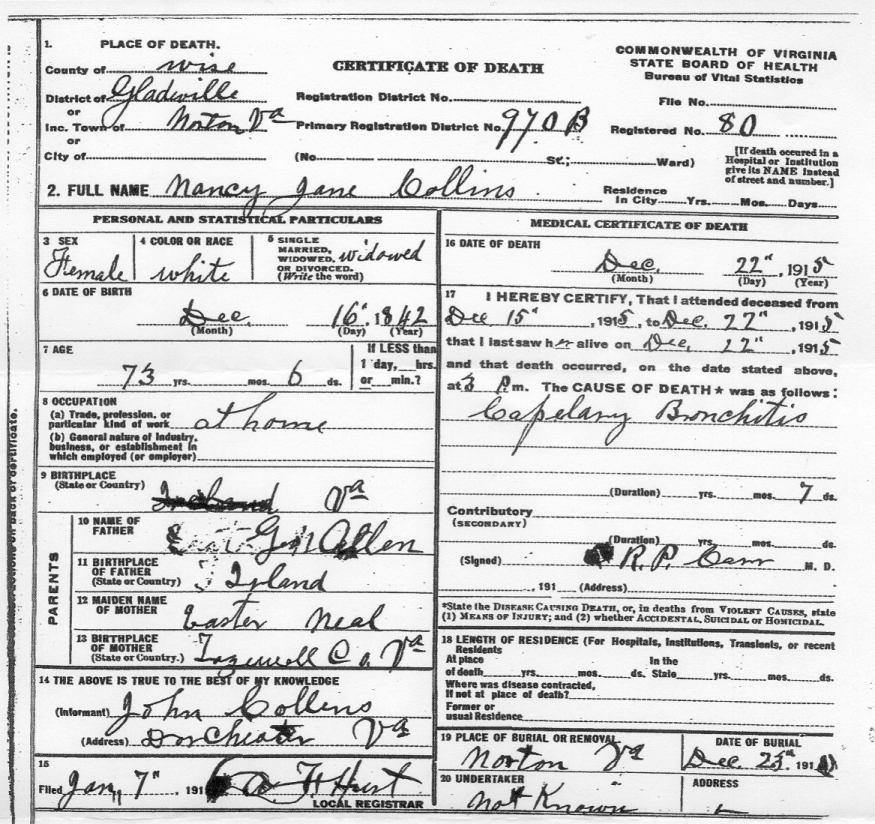 1. PLACE OF DEATH.
County of Wise
District of Gladeville
or
Inc. Town of Norton Va
or
City of
CERTIFICATE OF DEATH
Registration District No.
Primary Registration District No. 970 B
(No. St.; Ward)
COMMONWEALTH OF VIRGINIA
STATE BOARD OF HEALTH
Bureau of Vital Statistics
File No.
Registered No. 80
[If death occured in a
Hospital or Institution
give its NAME instead
of street and number.]
2. FULL NAME Nancy Jane Collins
Residence
In City Yrs. Mos. Days
PERSONAL AND STATISTICAL PARTICULARS
3 SEX
Female
4 COLOR OR RACE
white
5 SINGLE
MARRIED,
WIDOWED,
OR DIVORCED.
(Write the word)
widowed
6 DATE OF BIRTH
Dec. 16" 1842
(Month) (Day) (Year)
7 AGE
73 yrs. mos. 6 ds.
If LESS than
1 day, hrs.
or min.?
8 OCCUPATION
(a) Trade, profession, or
particular kind of work at home
(b) General nature of Industry,
business, or establishment in
which employed (or employer)
9 BIRTHPLACE
(State or Country)
Va
PARENTS
10 NAME OF
FATHER
Allen
11 BIRTHPLACE
OF FATHER
(State or Country)
12 MAIDEN NAME
OF MOTHER
Easter Neal
13 BIRTHPLACE
OF MOTHER
(State or Country.) Tazewell Co Va
14 THE ABOVE IS TRUE TO THE BEST OF MY KNOWLEDGE
(Informant) John Collins
(Address) Dorchester Va
15
Filed Jan, 7" 191 Hurst
LOCAL REGISTRAR
MEDICAL CERTIFICATE OF DEATH
16 DATE OF DEATH
Dec. 22" 1915
(Month) (Day) (Year)
17 I HEREBY CERTIFY, That I attended deceased from
Dec 15" , 1915, to Dec. 22" , 1915
that I last saw her alive on Dec, 22" , 1915
and that death occurred, on the date stated above,
at 3 P.m. The CAUSE OF DEATH * was as follows:
Capelary Bronchitis
(Duration) yrs. mos. 7 ds.
Contributory
(SECONDARY)
(Duration) yrs. mos. ds.
(Signed) R. P. M. D.
, 191 (Address)
*State the DISEASE CAUSING DEATH, or, in deaths from VIOLENT CAUSES, state
(1) MEANS OF INJURY; and (2) whether ACCIDENTAL, SUICIDAL or HOMICIDAL.
18 LENGTH OF RESIDENCE (For Hospitals, Institutions, Transients, or recent
Residents
At place In the
of death yrs. mos. ds. State yrs. mos. ds.
Where was disease contracted,
If not at place of death?
Former or
usual Residence
19 PLACE OF BURIAL OR REMOVAL
Norton Va
DATE OF BURIAL
Dec. 23" 191
20 UNDERTAKER
Not Known
ADDRESS